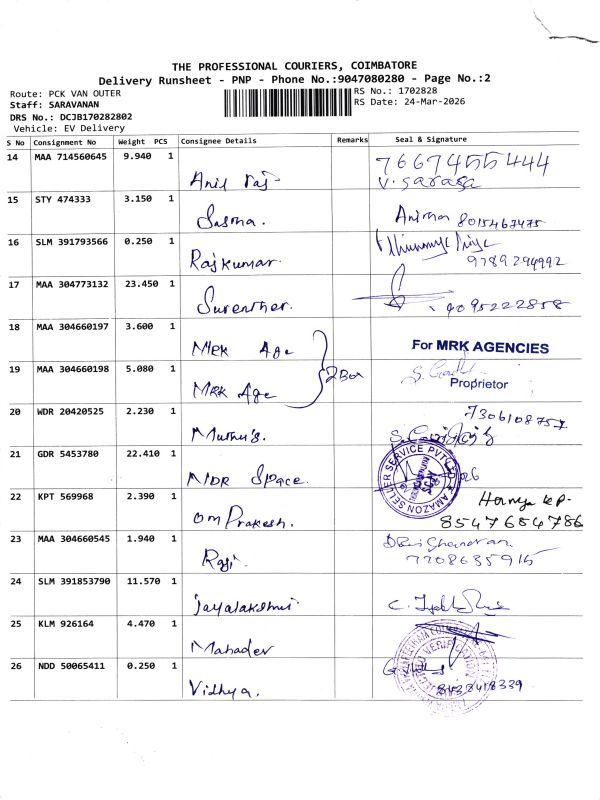 THE PROFESSIONAL COURIERS, COIMBATORE
Delivery Runsheet - PNP - Phone No.:9047080280 - Page No.:2
Route: PCK VAN OUTER
RS No.: 1702828
Staff: SARAVANAN
RS Date: 24-Mar-2026
DRS No.: DCJB170282802
Vehicle: EV Delivery
S No Consignment No Weight PCS Consignee Details Remarks Seal & Signature
14 MAA 714560645 9.940 1 Anil Raj 7667455444
V. Sarasa
15 STY 474333 3.150 1 Sasma. 8015463475
16 SLM 391793566 0.250 1 Rajkumar. 9789294992
17 MAA 304773132 23.450 1 Surenther. 9095222858
18 MAA 304660197 3.600 1 MRK Age For MRK AGENCIES
19 MAA 304660198 5.080 1 MRK Age 2 Box Proprietor
20 WDR 20420525 2.230 1 Muthu's. 7306108757
21 GDR 5453780 22.410 1 MDR Space. AMAZON SELLER SERVICE PVT LTD
22 KPT 569968 2.390 1 Om Prakesh. 8547654786
23 MAA 304660545 1.940 1 Raji. 7708635915
24 SLM 391853790 11.570 1 Jayalakshmi
25 KLM 926164 4.470 1 Mahadev
26 NDD 50065411 0.250 1 Vidhya. 8438418339